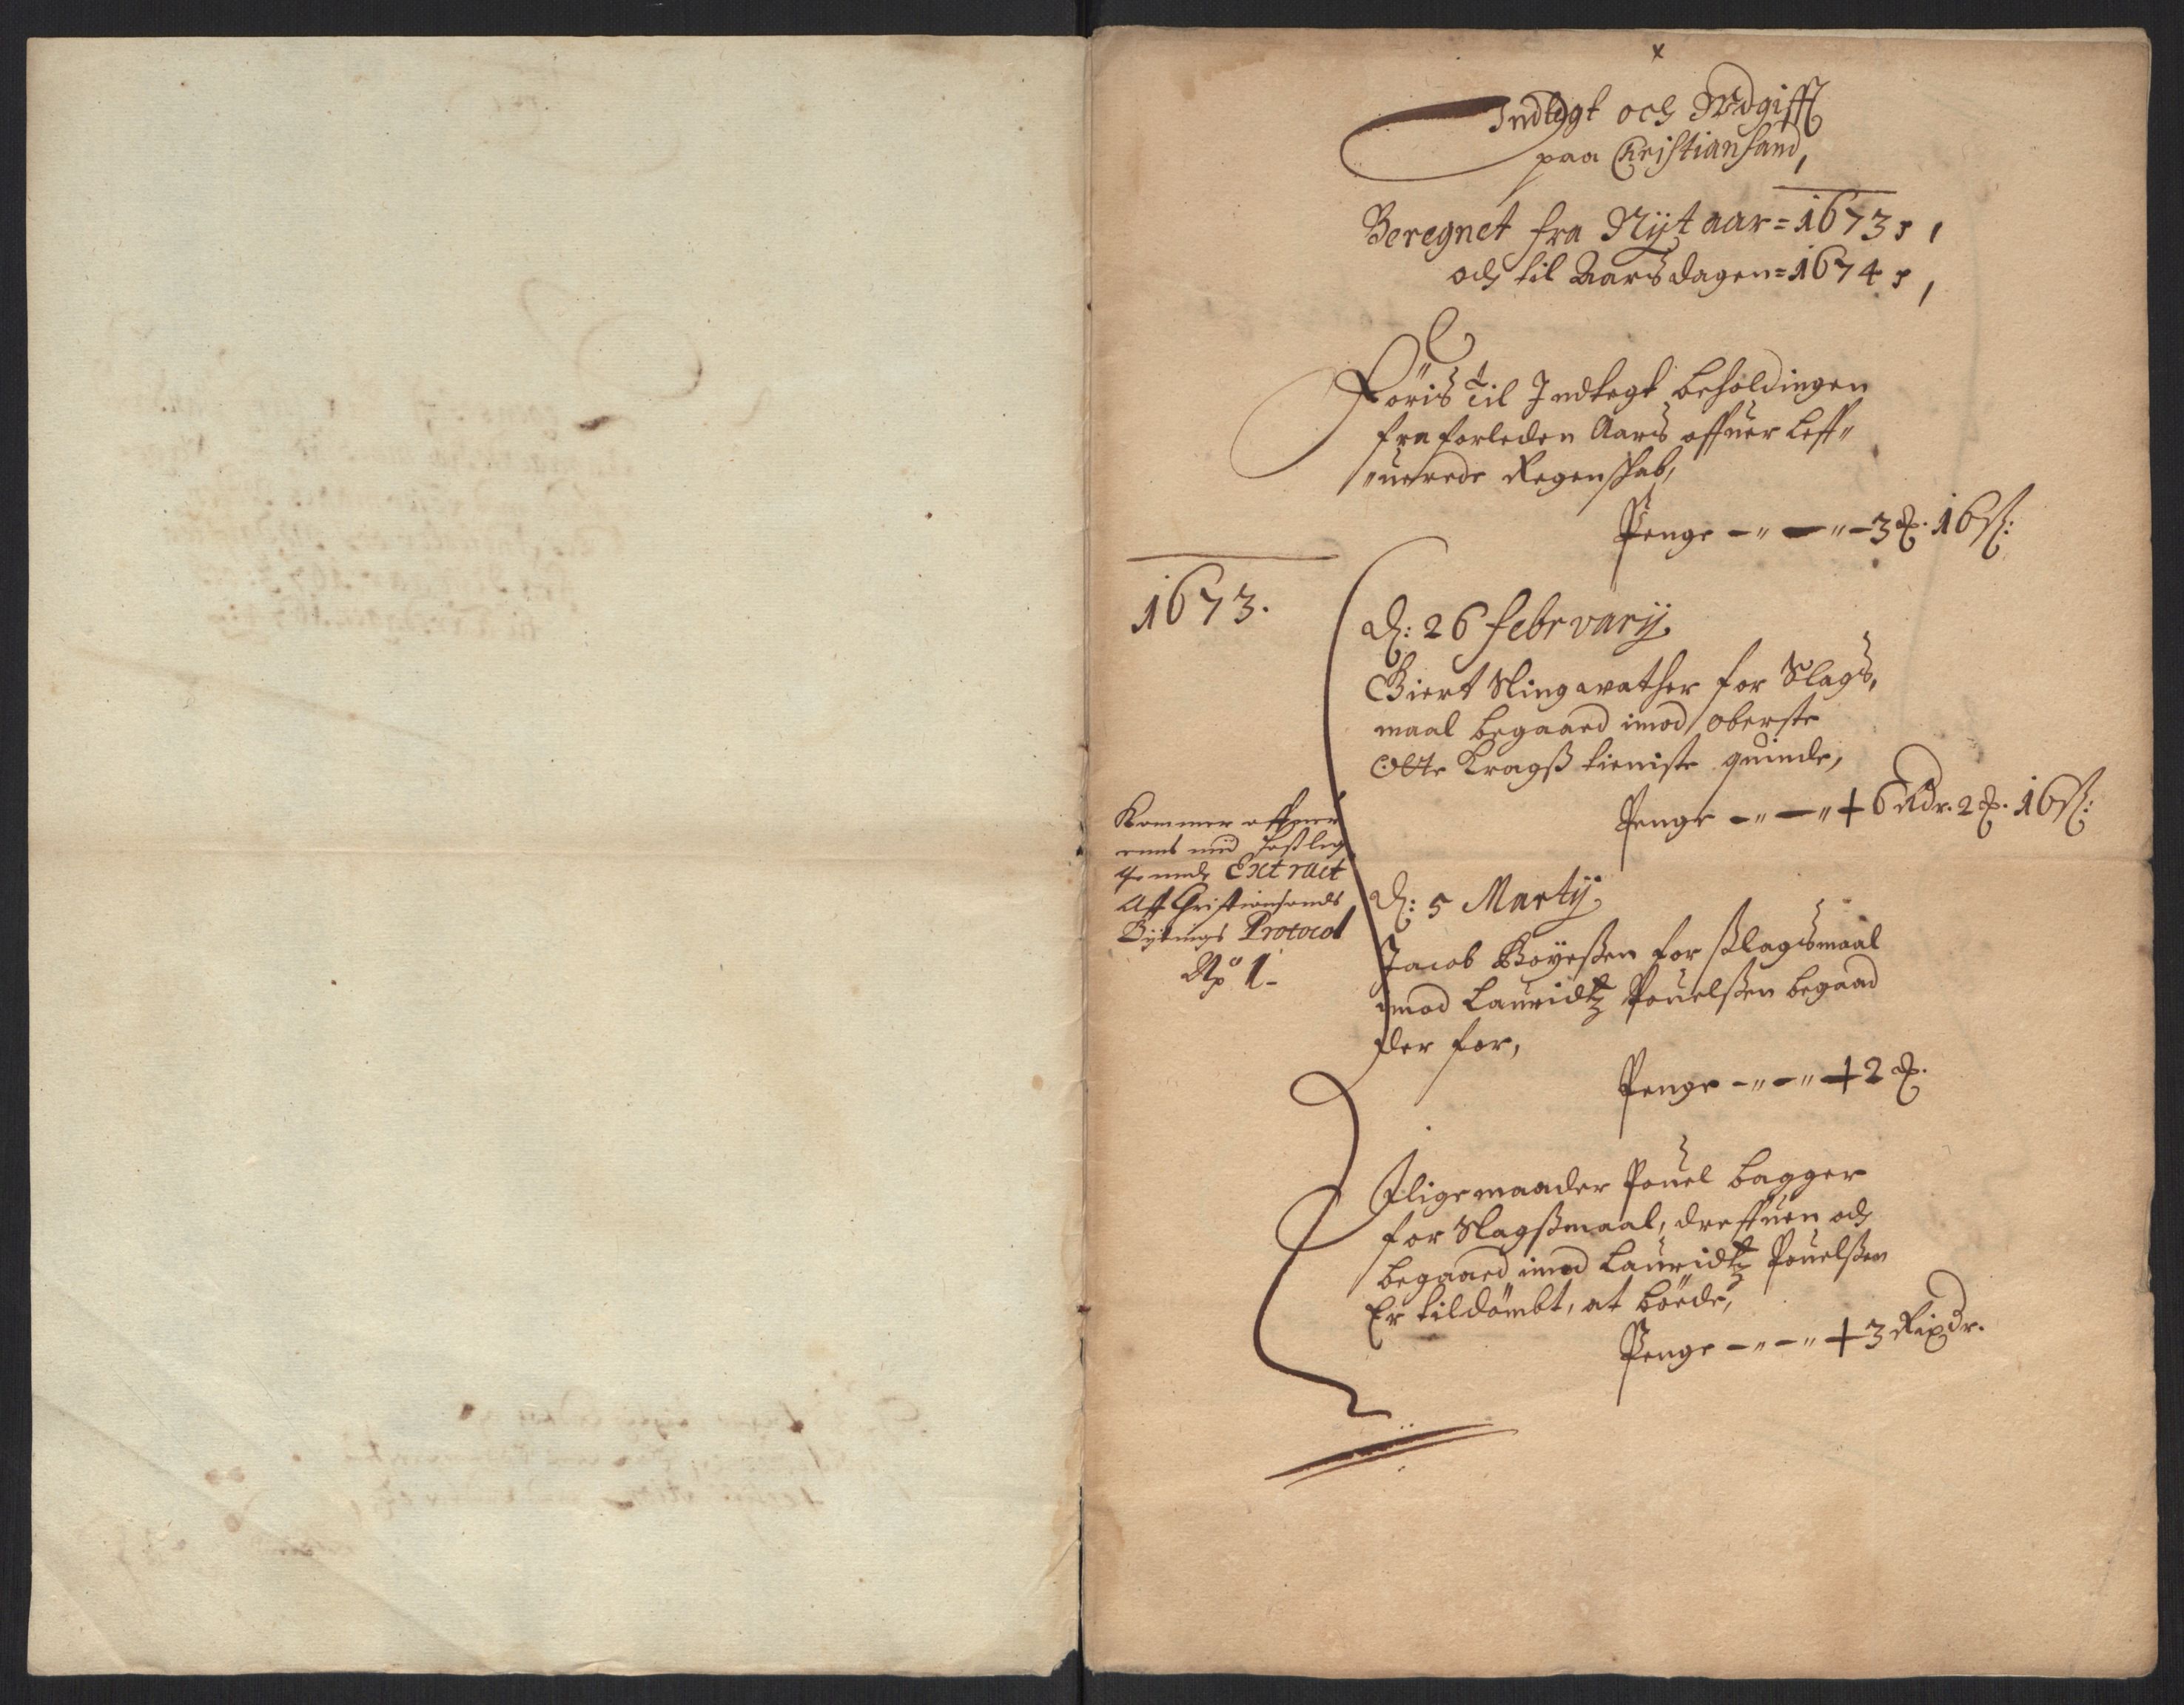 Indtegt och Wdgifft
paa Christiansand,
Beregnet fra Nÿt aar = 1673,
och til Aarsdagen = 1674,
Föris til Indtegt beholdingen
fra forleden Aars offuer leff„
„uerede Regenschab,
Penge -„-„- 3 ꝳ. 16 ß:
1673.
d: 26 Februarÿ
Giert Slingewather for Slags,
maal begaaed imod Oberste
Otte Kragß tieniste quinde,
Penge -„-„+ 6 Rdr. 2 ꝳ. 16 ß:
Kommer offuer
eens med hoßleg
te med Extract
Aff Christiansands
Bÿtings Protocol
No 1-
d: 5 Martÿ
Jacob Boyeßen for ßlagsmaal
imod Lauridtz Pouelßen begaaed
der for,
Penge -„-„+ 2 ꝳ.
Iligemaader Pouel Bagger
for Slagßmaal, dreffuen och
begaaed imod Lauridtz Pouelßen
Er tildömbt, at böede,
Penge -„-„+ 3 Rixdr.